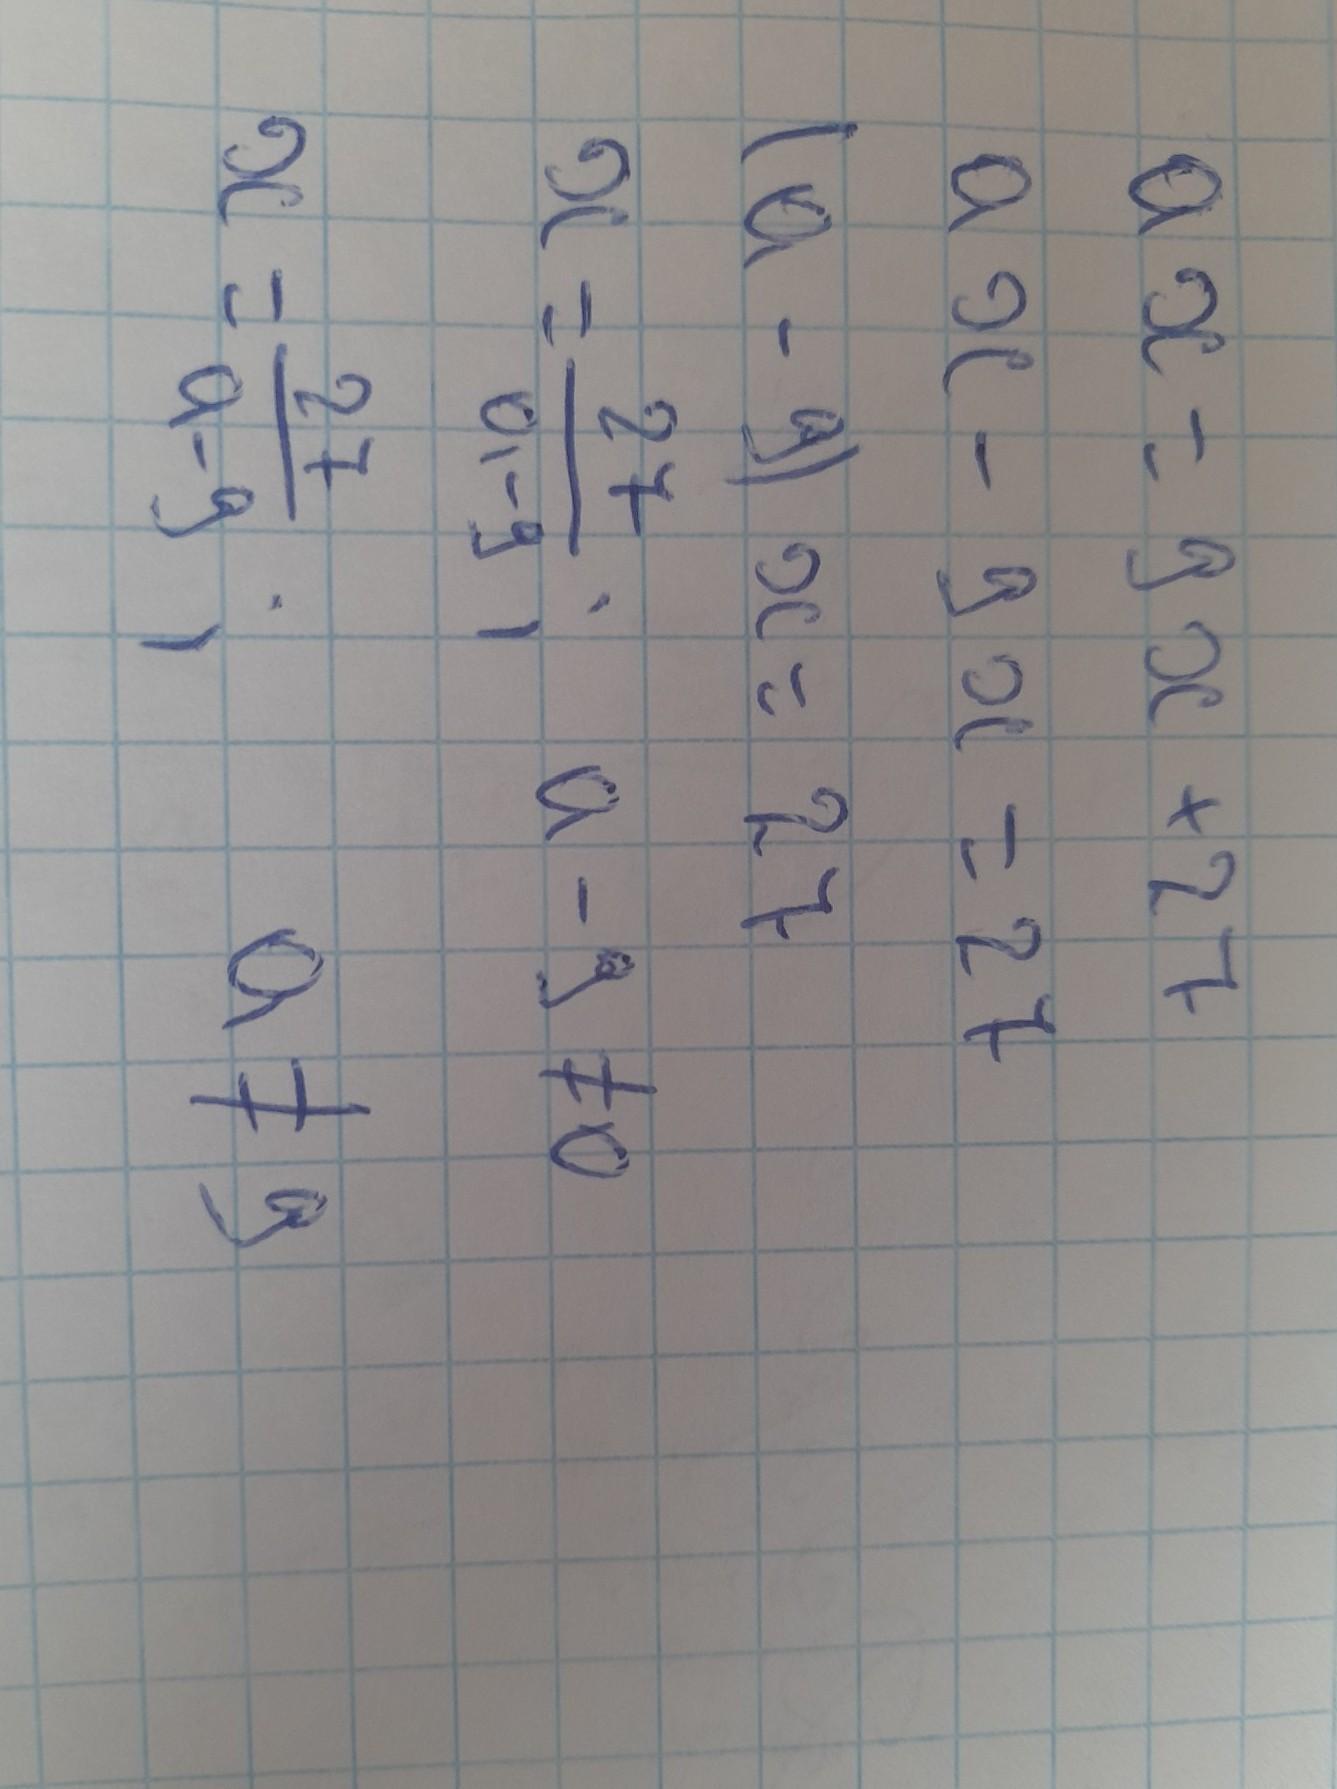 ax = 9x + 27
ax - 9x = 27
(a - 9)x = 27
x = 27/(a-9) ; a - 9 ≠ 0
x = 27/(a-9) ; a ≠ 9